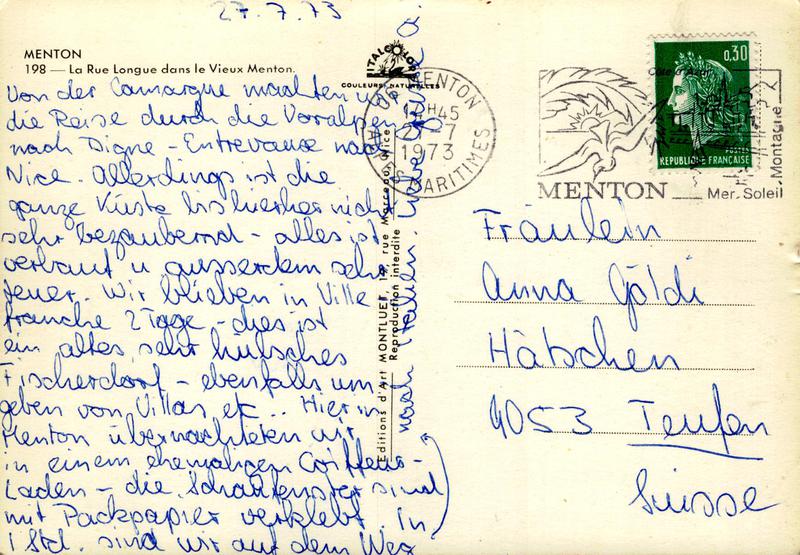 27.7.73
MENTON
198 — La Rue Longue dans le Vieux Menton.
ITALCOLOR
COULEURS NATURELLES
Von der Camargue machten wir
die Reise durch die Voralpen
nach Digne - Entrevaux nach
Nice. Allerdings ist die
ganze Küste bis hierher nicht
sehr bezaubernd - alles ist
verbaut u. ausserdem sehr
teuer. Wir blieben in Ville
franche 2 Tage - dies ist
ein altes, sehr hübsches
Fischerdorf - ebenfalls um-
geben von Villas, etc.. Hier in
Menton übernachteten wir
in einem ehemaligen Coiffeur-
Laden - die Schaufenster sind
mit Packpapier verklebt. In
1 Std. sind wir auf dem Weg
nach Italien. Liebe Grüsse
Editions d'Art MONTLUET, 19, rue Marceau, Nice
Reproduction interdite
MENTON
H45
27-7
1973
ALPES MARITIMES
Côte d'Azur
MENTON
Mer. Soleil. Montagne
0,30
POSTES
REPUBLIQUE FRANÇAISE
Fräulein
Anna Göldi
Hätschen
9053 Teufen
Suisse